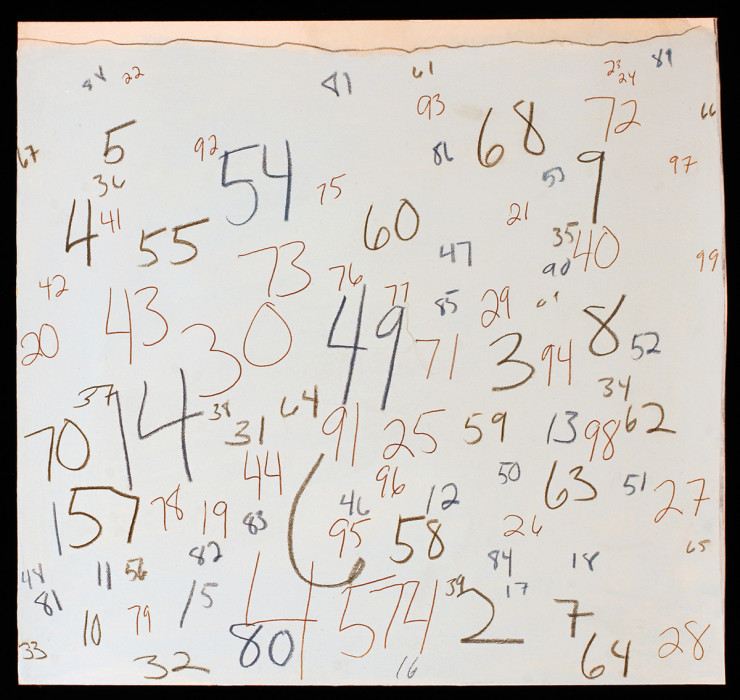 22
61
23
24
89
93
72
68
66
67
5
92
54
86
53
9
97
36
75
4
41
55
60
21
35
40
47
90
99
73
76
77
42
43
20
30
49
85
29
71
3
94
8
52
34
37
14
38
31
64
91
25
59
13
98
62
70
44
96
50
63
51
27
1
57
78
19
83
6
46
95
12
58
26
65
82
84
18
48
11
56
81
10
79
15
45
74
39
17
2
7
33
32
80
16
64
28